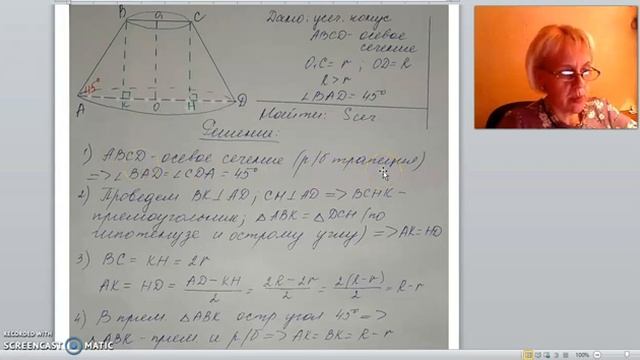 B O₁ C
45°
A K O H D
Дано: усеч. конус
ABCD - осевое
сечение
O₁C = r ; OD = R
R > r
∠BAD = 45°
Найти: Sсеч
Решение:
1) ABCD - осевое сечение (р/б трапеция)
=> ∠BAD = ∠CDA = 45°
2) Проведем BK⊥AD ; CH⊥AD => BCHK -
прямоугольник ; △ABK = △DCH (по
гипотенузе и острому углу) => AK = HD
3) BC = KH = 2r
AK = HD = (AD - KH)/2 = (2R - 2r)/2 = (2(R - r))/2 = R - r
4) В прям. △ABK остр угол 45° =>
△ABK - прям и р/б => AK = BK = R - r
RECORDED WITH
SCREENCAST MATIC
100%